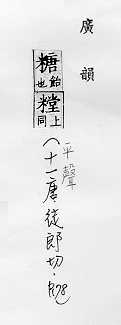 廣韻
糖飴也
上同
平聲
(十一唐徒郎切.